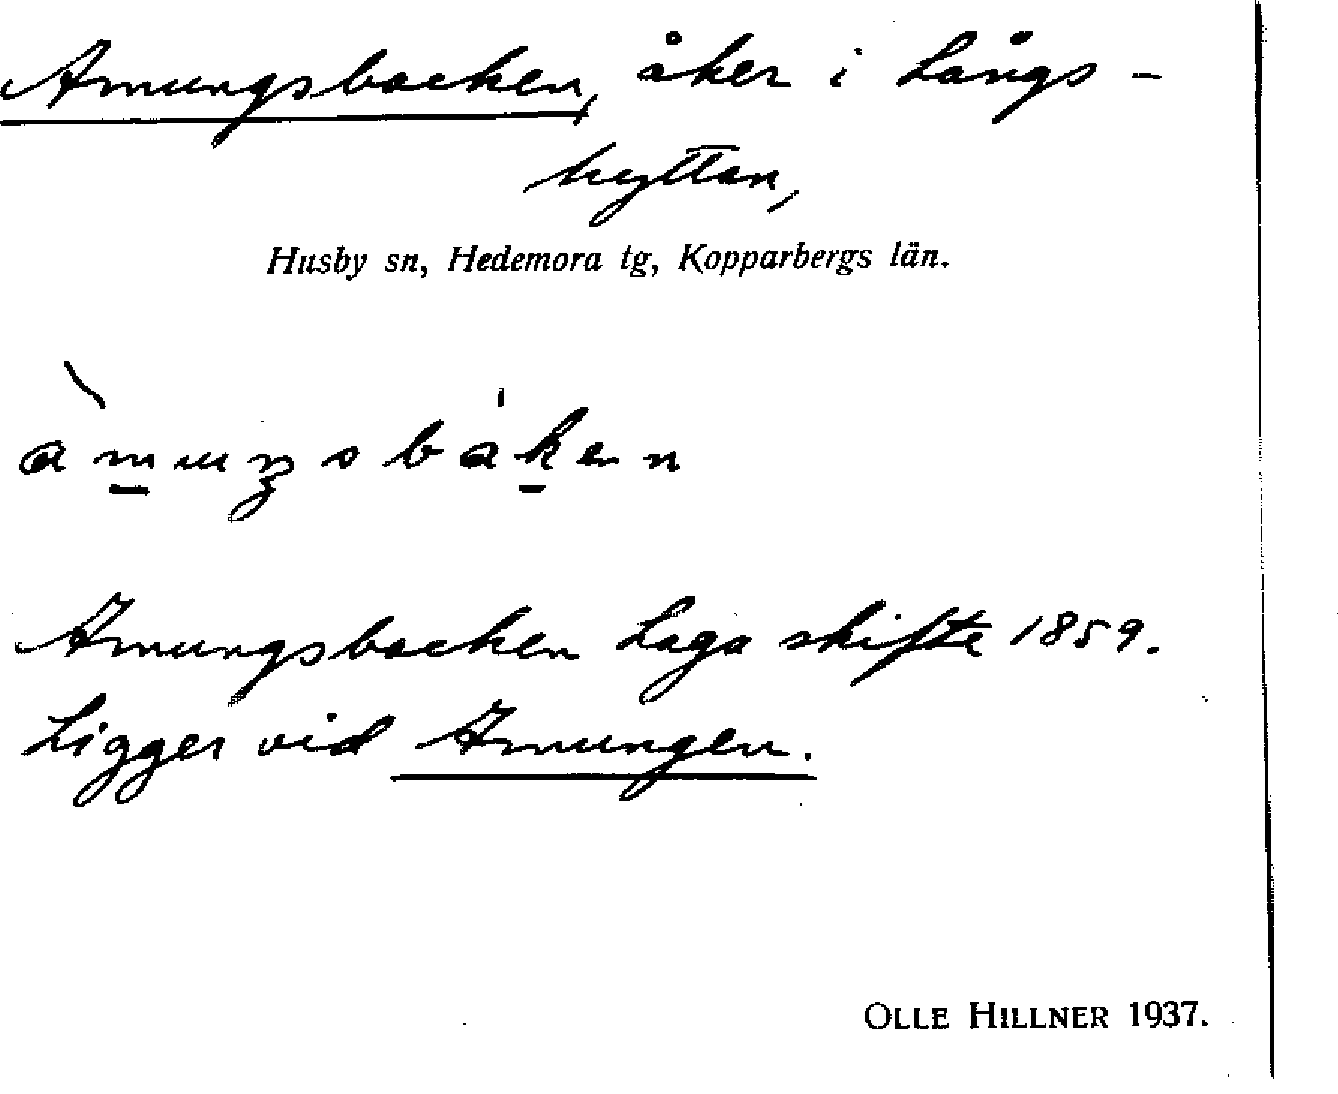 Amungsbacken, åker i Långs-
hyttan,
Husby sn, Hedemora tg, Kopparbergs län.
Amungsbacken Laga skifte 1859.
Ligger vid Amungen.
OLLE HILLNER 1937.